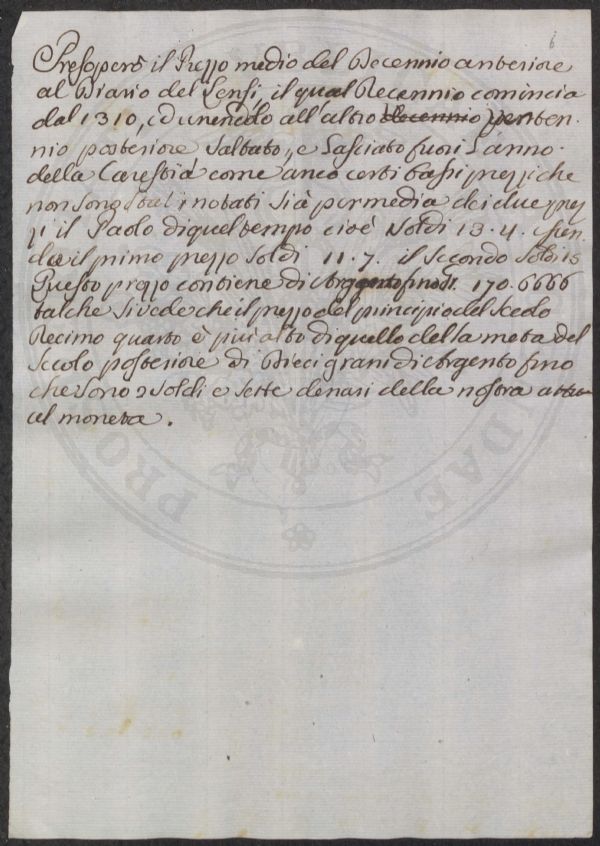 6
Preso però il Prezzo medio del Decennio anteriore
al Diario del Lensi, il qual Decennio comincia
dal 1310, ed unendolo all'altro Decennio
nio posteriore saltato, e lasciato fuori l'anno
della Carestia come anco certi bassi prezzi che
non sono stati notati si à per media dei due prez
zi il Paolo di quel tempo cioè Soldi 13.4. essen
do il primo prezzo soldi 11.7. il secondo soldi 15
Questo prezzo contiene di Argento fino 170.6666
talche si vede che il prezzo del principio del Secolo
Decimo quarto è più alto di quello della metà del
Secolo posteriore di Dieci grani di Argento fino
che sono 2 soldi e sette denari della nostra attu
al moneta.
PRO DAE